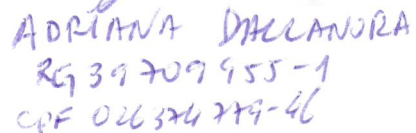 ADRIANA DALLANORA
RG 39709455-1
CPF 026374779-46